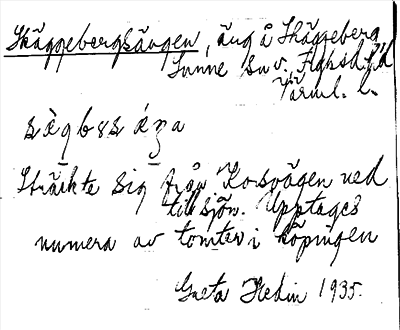 Skäggebergsängen, äng å Skäggeberg,
Sunne sn
Värml. l.
Sträckte sig från Korsvägen ned
till sjön. Upptages
numera av tomter i köpingen
Greta Hedin 1935.